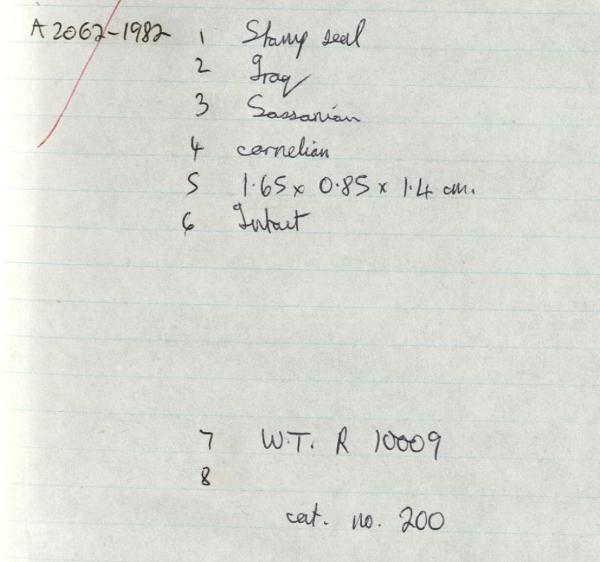 A 2062-1982 1 Stamp seal
2 Iraq
3 Sassanian
4 cornelian
5 1.65 x 0.85 x 1.4 cm.
6 Intact
7 W.T. R 10009
8
cat. no. 200